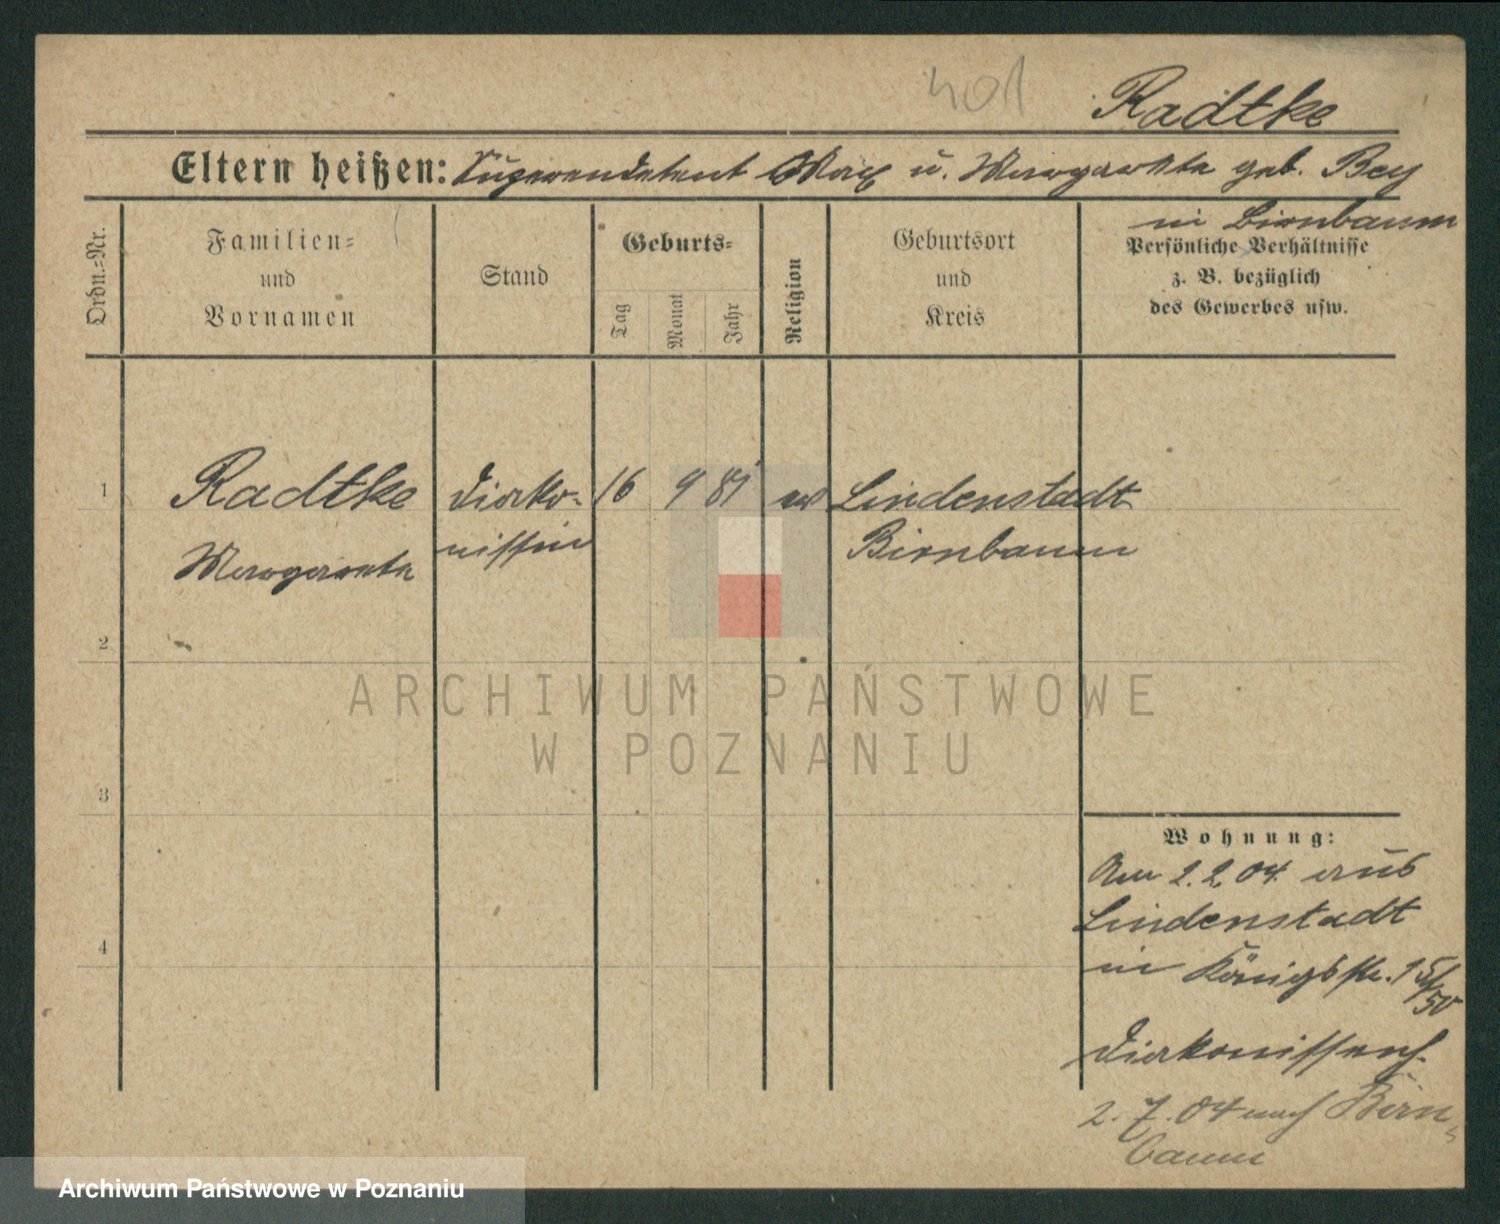 401
Radtke
Eltern heißen: Superendatent Max u. Margarethe geb. Bey
in Birnbaum
Ordn.-Nr.
Familien-
und
Vornamen
Stand
Geburts-
Tag
Monat
Jahr
Religion
Geburtsort
und
Kreis
Persönliche Verhältnisse
z. B. bezüglich
des Gewerbes usw.
1
Radtke
Margarete
Diako-
nissin
16
9
81
ev
Lindenstadt
Birnbaum
2
3
4
ARCHIWUM PAŃSTWOWE
W POZNANIU
Wohnung:
Am 2.2.04 aus
Lindenstadt
in Königstr. 15/
50
Diakonissenh.
2.7.04 nach Birn-
baum
Archiwum Państwowe w Poznaniu